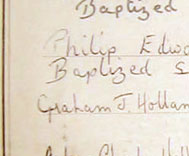 Baptized
Philip Edw
Baptized S
Graham J. Hollan